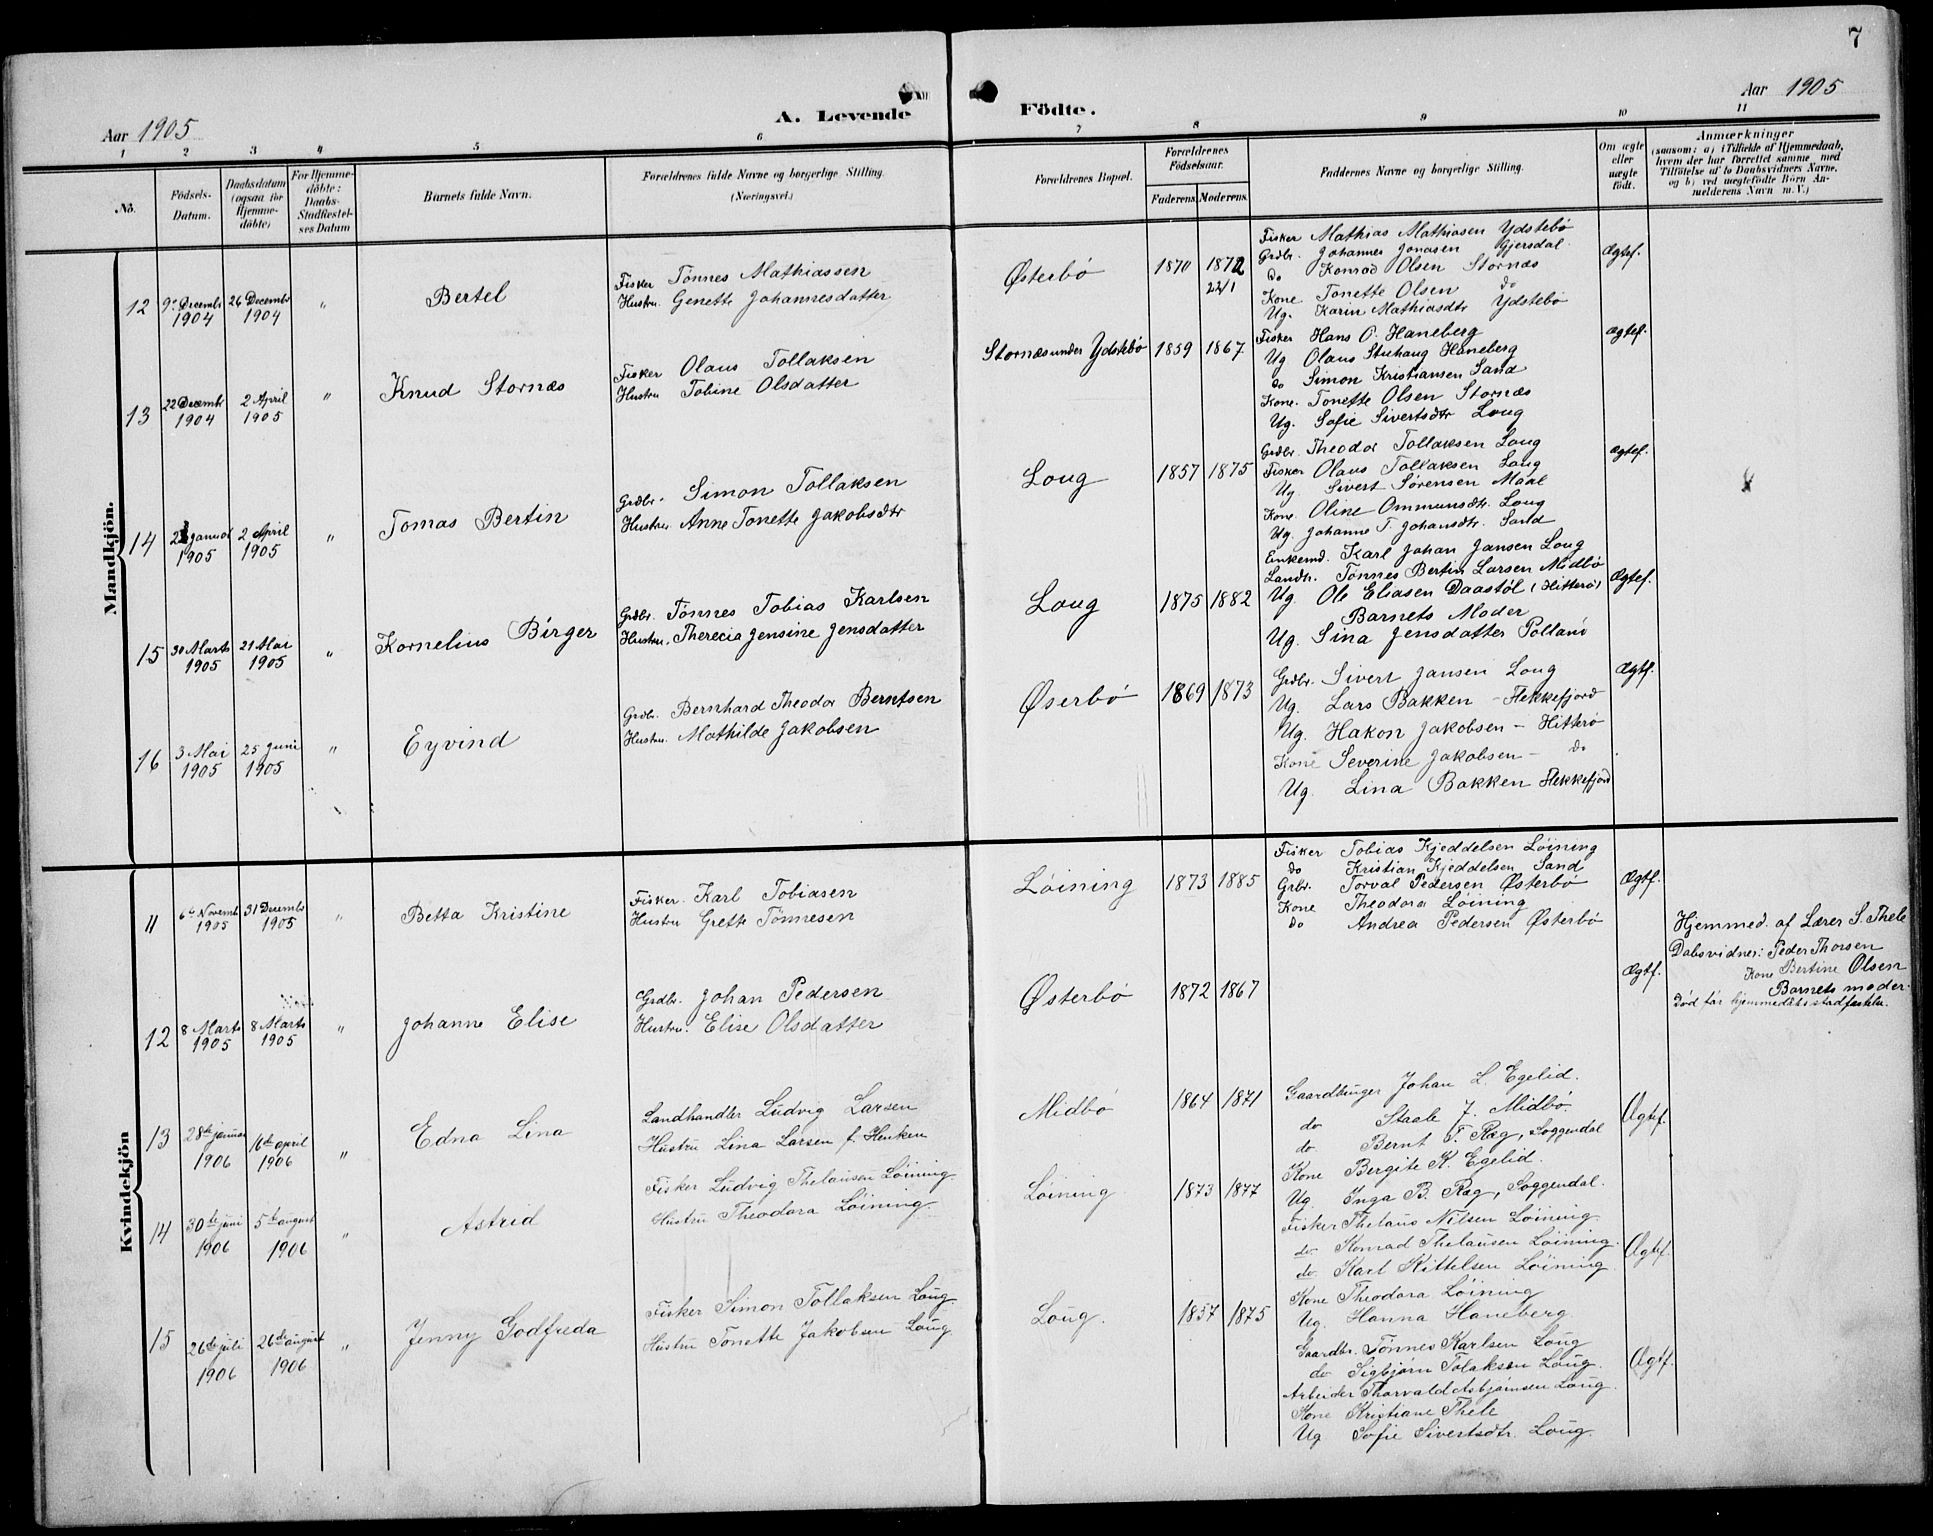 7
Aar 1905
A. Levende Födte.
Aar 1905
1 2 3 4 5 6 7 8 9 10 11
No.
Födsels-Datum.
Daabsdatum (ogsaa for Hjemme-döbte)
For Hjemme-döbte: Daabs-Stadfæstel-ses Datum
Barnets fulde Navn.
Forældrenes fulde Navne og borgerlige Stilling. (Næringsvei.)
Forældrenes Bopæl.
Forældrenes Födselsaar.
Faderens Moderens
Faddernes Navne og borgerlige Stilling.
Om ægte eller uægte födt.
Anmærkninger
(saasom: a) i Tilfælde af Hjemmedaab,
hvem der har forrettet samme, med
Tilföielse af to Daabsvidners Navne,
og b) ved uægtefödte Börn An-
melderens Navn m. V.)
Mandkjön.
12 9de Decembr 1904 26 Decembr 1904 " Bertel
Fisker Tønnes Mathiassen
Hustru Genette Johannesdatter
Østerbö 1870 1872 22/1
Fisker Mathias Mathiasen Ydstebö
Grdbr. Johannes Jonasen Gjersdal
do Konrad Olsen Stornæs
Kone Tonette Olsen do
Ug. Karin Mathiasdtr Ydstebö
Ægtef.
13 22 Decembr 1904 2 April 1905 " Knud Stornæs
Fisker Olaus Tollaksen
Hustru Tobine Olsdatter
Stornæs under Ydstebö 1859 1867
Fisker Hans O. Haneberg
Ug Olaus Stuhaug Haneberg
do Simon Kristiansen Sand
Kone. Tonette Olsen Stornæs
Ug. Sofie Sivertsdtr Loug
Ægtef.
14 Januar 1905 2 April 1905 " Tomas Bertin
Grdbr. Simon Tollaksen
Hustru Anne Tonette Jakobsdtr
Loug 1857 1875
Grdbr. Theodor Tollaksen Loug
Fisker Olaus Tollaksen Loug
Ug Sivert Sörensen Maal
Kone. Oline Ommunsdtr. Loug
Ug. Johanne T. Johansdtr. Sand
Ægtef.
15 30 Marts 1905 21 Mai 1905 " Kornelius Birger
Grdbr. Tönnes Tobias Karlsen
Hustru. Therecia Jensine Jensdatter
Loug 1875 1882
Enkemd. Karl Johan Jansen Loug
Landh. Tønnes Bertin Larsen Midbö
Ug. Ole Eliasen Daastöl (Hitterö)
Barnets Moder
Ug. Sina Jensdatter Polland
Ægtef.
16 3 Mai 1905 25 Juni 1905 " Eyvind
Grdbr. Bernhard Theodor Berntsen
Hustru. Mathilde Jakobsen
Øserbö 1869 1873
Grdbr. Sivert Jansen Loug
Ug. Lars Bakken - Flekkefjord
Ug. Hakon Jakobsen - Hitterö
Kone Severine Jakobsen - do
Ug. Lina Bakken Flekkefjord
Ægtf.
Kvindekjön
11 6te Novemb 1905 31 Decembr 1905 " Betta Kristine
Fisker. Karl Tobiasen
Hustru Grethe Tönnesen
Löining 1873 1885
Fisker Tobias Kjeddelsen Löining
do Kristian Kjeddelsen Sand
Grbr. Torval Pedersen Østerbö
Kone Theodora Löining
do Andrea Pedersen Østerbö
Ægtf.
12 8 Marts 1905 8 Marts 1905 " Johanne Elise
Grdbr. Johan Pedersen
Hustru. Elise Olsdatter
Østerbö 1872 1867
Ægtf.
Hjemmed. af Lærer S. Thele
Dabsvidner: Peder Thorsen
Kone Bertine Olsen
Barnets moder.
Död för hjemmedåb stadfæstet.
13 28de januar 1906 16de april 1906 " Edna Lina
Landhandler Ludvig Larsen
Hustru Lina Larsen f. Henken
Midbö 1864 1871
Gaardbruger Johan L. Egelid.
do Staale J. Midbö
do. Bernt T. Ræg, Soggendal
Kone Bergite K. Egelid.
Ug. Inga B. Ræg, Soggendal.
Ægtef.
14 30te juni 1906 5te august 1906 " Astrid
Fisker Ludvig Thelausen Löining
Hustru Theodora Löining
Löining 1873 1877
Fisker Thelaus Nilsen Löining.
do Konrad Thelausen Löining.
do Karl Kittelsen Löining
Kone Theodora Löining
Ug. Hanna Haneberg
Ægtef.
15 26de juli 1906 26de august 1906 " Jenny Godfreda
Fisker Simon Tollaksen Loug.
Hustru Tonette Jakobsen Loug
Loug. 1857 1875
Gaardbr. Tönnes Karlsen Loug
do Sigbjörn Tolaksen Loug.
Arbeider Thorvald Asbjörnsen Loug.
Kone Kristiane Thele
Ug Sofie Sivertsdtr. Loug.
Ægtf.